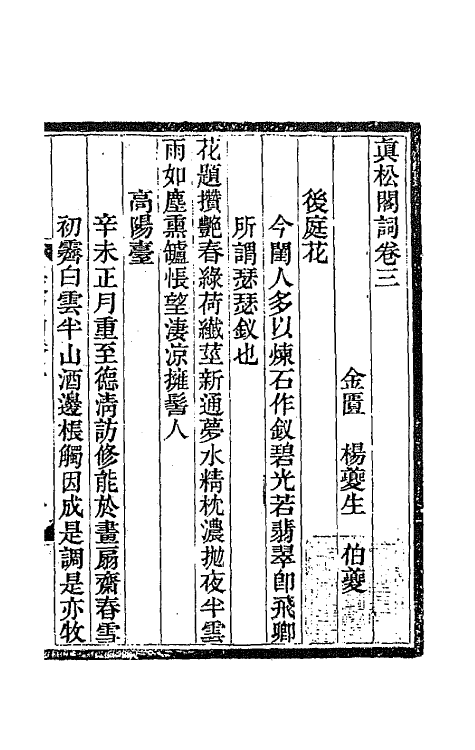 真松閣詞卷三
金匱　楊夔生　伯夔
後庭花
今閨人多以煉石作釵碧光若翡翠卽飛卿
所謂瑟瑟釵也
花題攢艷春綠荷纖莖新通夢水精枕濃拋夜半雲
雨如塵熏鑪悵望淒涼擁髻人
高陽臺
辛未正月重至德淸訪修能於畫扇齋春雪
初霽白雲半山酒邊棖觸因成是調是亦牧